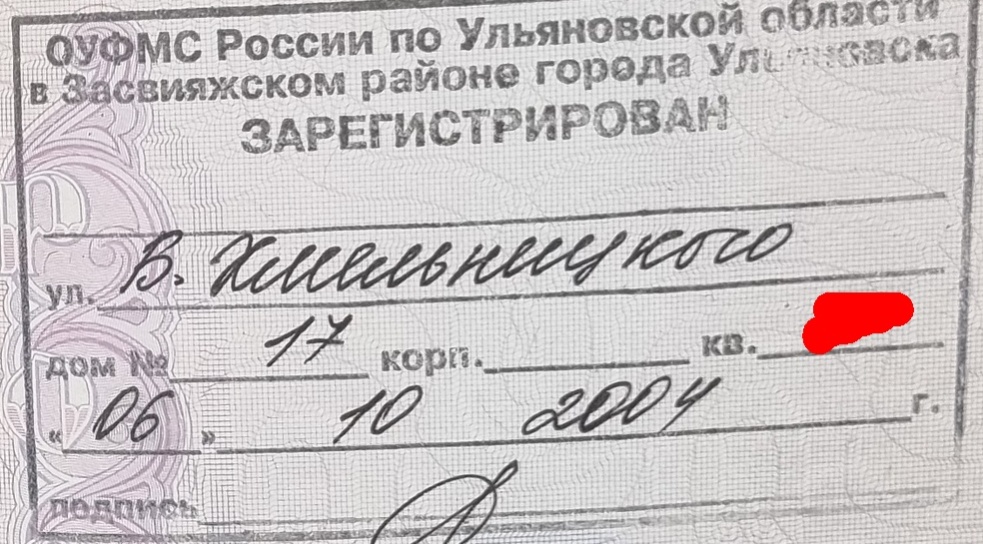 ОУФМС России по Ульяновской области
в Засвияжском районе города Ульяновска
ЗАРЕГИСТРИРОВАН
ул. Б. Хмельницкого
дом № 17 корп. кв.
« 06 » 10 2004 г.
подпись